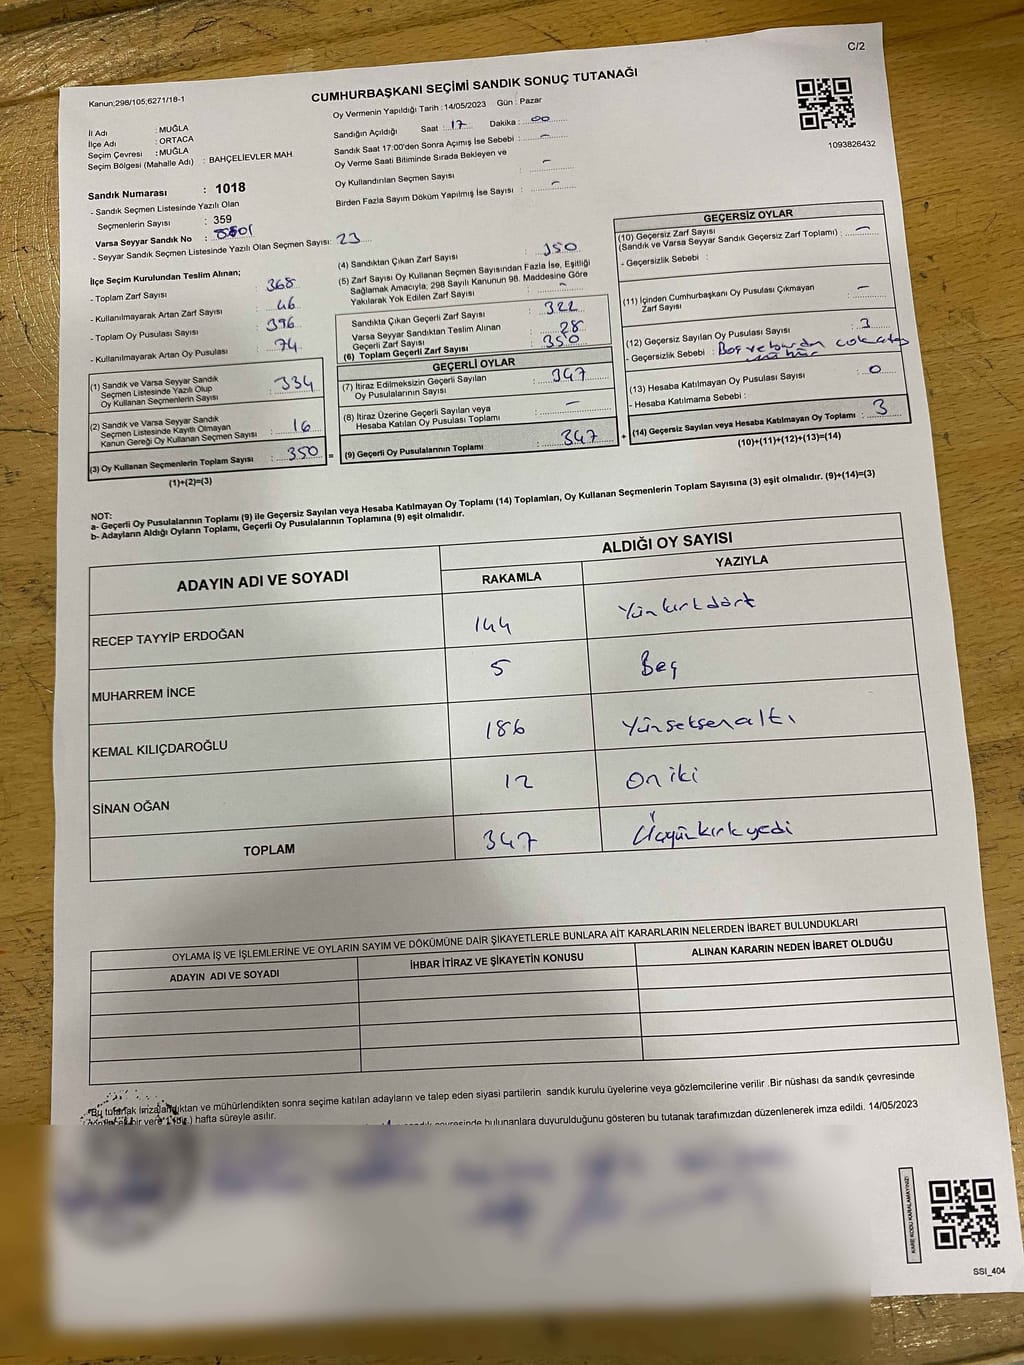 C/2
Kanun;298/105,6271/18-1
CUMHURBAŞKANI SEÇİMİ SANDIK SONUÇ TUTANAĞI
İl Adı : MUĞLA
İlçe Adı : ORTACA
Seçim Çevresi : MUĞLA
Seçim Bölgesi (Mahalle Adı) : BAHÇELİEVLER MAH.
Oy Vermenin Yapıldığı Tarih : 14/05/2023 Gün : Pazar
Sandığın Açıldığı Saat : 17 Dakika : 00
Sandık Saat 17:00'den Sonra Açımış İse Sebebi : -
Oy Verme Saati Bitiminde Sırada Bekleyen ve
Oy Kullandırılan Seçmen Sayısı : -
Birden Fazla Sayım Döküm Yapılmış İse Sayısı : -
1093826432
Sandık Numarası : 1018
- Sandık Seçmen Listesinde Yazılı Olan
Seçmenlerin Sayısı : 359
Varsa Seyyar Sandık No :
- Seyyar Sandık Seçmen Listesinde Yazılı Olan Seçmen Sayısı: 23
İlçe Seçim Kurulundan Teslim Alınan;
- Toplam Zarf Sayısı : 368
- Kullanılmayarak Artan Zarf Sayısı : 46
- Toplam Oy Pusulası Sayısı : 396
- Kullanılmayarak Artan Oy Pusulası : 74
(1) Sandık ve Varsa Seyyar Sandık
Seçmen Listesinde Yazılı Olup
Oy Kullanan Seçmenlerin Sayısı : 334
(2) Sandık ve Varsa Seyyar Sandık
Seçmen Listesinde Kayıtlı Olmayan
Kanun Gereği Oy Kullanan Seçmen Sayısı : 16
(3) Oy Kullanan Seçmenlerin Toplam Sayısı : 350
(1)+(2)=(3)
(4) Sandıktan Çıkan Zarf Sayısı : 350
(5) Zarf Sayısı Oy Kullanan Seçmen Sayısından Fazla İse, Eşitliği
Sağlamak Amacıyla, 298 Sayılı Kanunun 98. Maddesine Göre
Yakılarak Yok Edilen Zarf Sayısı : -
Sandıkta Çıkan Geçerli Zarf Sayısı : 322
Varsa Seyyar Sandıktan Teslim Alınan
Geçerli Zarf Sayısı : 28
(6) Toplam Geçerli Zarf Sayısı : 350
GEÇERLİ OYLAR
(7) İtiraz Edilmeksizin Geçerli Sayılan
Oy Pusulalarının Sayısı : 347
(8) İtiraz Üzerine Geçerli Sayılan veya
Hesaba Katılan Oy Pusulası Toplamı : -
= (9) Geçerli Oy Pusulalarının Toplamı : 347
GEÇERSİZ OYLAR
(10) Geçersiz Zarf Sayısı
(Sandık ve Varsa Seyyar Sandık Geçersiz Zarf Toplamı) : -
- Geçersizlik Sebebi :
(11) İçinden Cumhurbaşkanı Oy Pusulası Çıkmayan
Zarf Sayısı : -
(12) Geçersiz Sayılan Oy Pusulası Sayısı : 3
- Geçersizlik Sebebi : Boş ve
(13) Hesaba Katılmayan Oy Pusulası Sayısı : 0
- Hesaba Katılmama Sebebi :
+ (14) Geçersiz Sayılan veya Hesaba Katılmayan Oy Toplamı : 3
(10)+(11)+(12)+(13)=(14)
NOT:
a- Geçerli Oy Pusulalarının Toplamı (9) ile Geçersiz Sayılan veya Hesaba Katılmayan Oy Toplamı (14) Toplamları, Oy Kullanan Seçmenlerin Toplam Sayısına (3) eşit olmalıdır. (9)+(14)=(3)
b- Adayların Aldığı Oyların Toplamı, Geçerli Oy Pusulalarının Toplamına (9) eşit olmalıdır.
ADAYIN ADI VE SOYADI
ALDIĞI OY SAYISI
RAKAMLA YAZIYLA
RECEP TAYYİP ERDOĞAN 144 Yüzkırkdört
MUHARREM İNCE 5 Beş
KEMAL KILIÇDAROĞLU 186 Yüzseksenaltı
SİNAN OĞAN 12 On iki
TOPLAM 347 Üçyüzkırkyedi
OYLAMA İŞ VE İŞLEMLERİNE VE OYLARIN SAYIM VE DÖKÜMÜNE DAİR ŞİKAYETLERLE BUNLARA AİT KARARLARIN NELERDEN İBARET BULUNDUKLARI
ADAYIN ADI VE SOYADI İHBAR İTİRAZ VE ŞİKAYETİN KONUSU ALINAN KARARIN NEDEN İBARET OLDUĞU
Bu tutanak imzalandıktan ve mühürlendikten sonra seçime katılan adayların ve talep eden siyasi partilerin sandık kurulu üyelerine veya gözlemcilerine verilir .Bir nüshası da sandık çevresinde
bir yere hafta süreyle asılır.
çevresinde bulunanlara duyurulduğunu gösteren bu tutanak tarafımızdan düzenlenerek imza edildi. 14/05/2023
KARE KODU KARALAMAYINIZ!
SSI_404